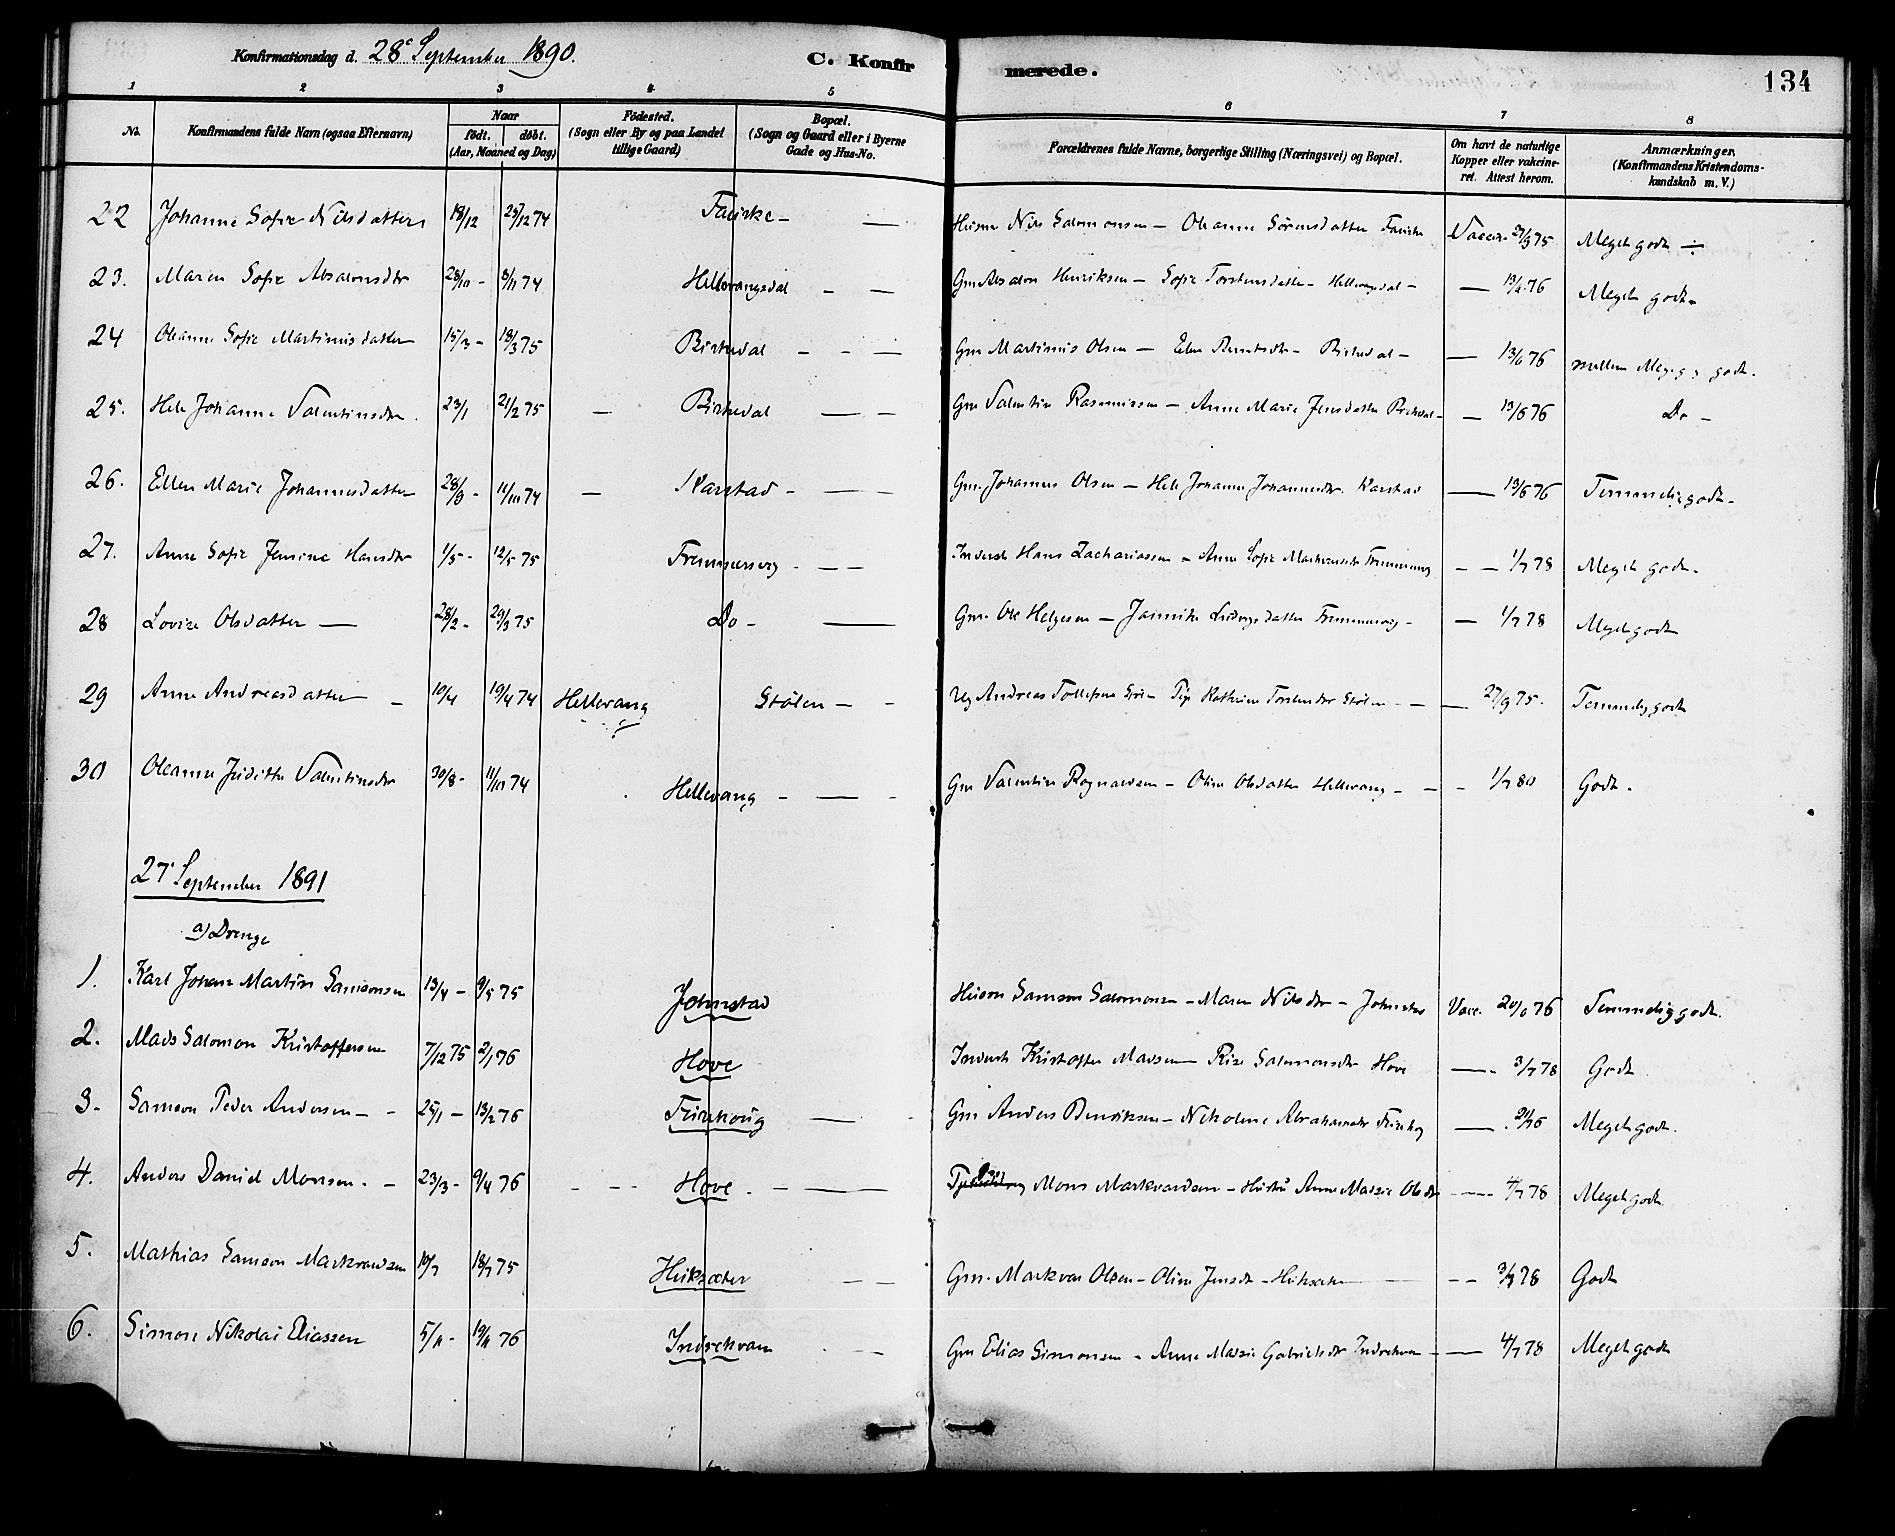 Konfirmationsdag d. 28de September 1890. C. Konfirmerede. 134
1 2 3 4 5 6 7 8
No. Konfirmandens fulde Navn (ogsaa Efternavn) Naar født. døbt. (Aar, Maaned og Dag) Fødested. (Sogn eller By og paa Landet tillige Gaard) Bopæl. (Sogn og Gaard eller i Byerne Gade og Hus-No. Forældrenes fulde Navne, borgerlige Stilling (Næringsvei) og Bopæl. Om havt de naturlige Kopper eller vakcineret. Attest herom. Anmærkninger. (Konfirmandens Kristendomskundskab m. V.)
22 Johanne Sofie Nilsdatter 18/12 25/12 74 Nils Salomonsen — Oleanne Sørensdatter Meget godt
23. Maren Sofie Absalonsdtr 28/10 - 8/11 74 Hellevangsdal — Gm Absalon Henriksen — Sofie Torstensdatter - Hellevangsdal — Meget godt
24 Oleanne Sofie Martinusdatter 15/3 - 18/3 75 Birkedal — Gm Martinus Olsen — Birkedal — 13/6 76 mellem Meget og godt.
25. Johanne Valentinsdtr. 23/1 21/2 75 — Birkedal — Gm Valentin Rasmussen — Anne Marie Jensdatter Birkedal — 13/6 76 Do -
26. Ellen Marie Johannesdatter 28/8 - 11/10 74 — Karstad - — Gm. Johannes Olsen — Johanne Johannesdtr. Karstad — 13/6 76 Temmelig godt -
27. Anne Sofie Jensine Hansdtr 1/5 - 12/5 75 — Hans Zachariassen - Anne Sofie — 1/7 78 Meget godt.
28 Lovise Olsdatter — 28/2 - 29/3 75 Do - — Gm. Ole Helgesen — Ludvigsdatter — 1/7 78 Meget godt
29 Anne Andreasdatter - 10/4 19/4 74 Hellevang Stølen — Andreas Tollefsen — Stølen — 27/9 75. Temmelig godt
30 Oleanna Juditha Valentinsdtr 30/8 - 11/10 74 Hellevang - — Gm Valentin Rognaldsen — Oline Olsdatter Hellevang - 1/7 80 Godt.
27 September 1891
a) Drenge
1. Karl Johan Martin Samsonsen 13/4 - 9/5 75 Johnstad Samson Salomonsen - Maren Nilsdtr - Johnstad Vacc. 20/6 76 Temmelig godt.
2. Mads Salomon Kristoffersen 7/12 75 2/1 76 Hove Kristoffer Madsen — Salomonsdtr Hove — 3/7 78 Godt
3. Samson Peder Andersen - - 25/1 - 13/2 76 — Gm Anders Bendriksen - Nikoline Abrahamsdtr — Meget godt.
4. Anders Daniel Monsen. - 23/3 - 9/4 76 Hove. - — Mons Markvardsen - Hustru Anne Massie Olsdtr — 4/7 78 Meget godt.
5. Mathias Samson Markvardsen 18/7 75 — Gm. Markvar Olsen - Oline Jensdtr — Godt
6. Simon Nikolai Eliassen 5/11 - 19/11 76 Indrekvam — Gm Elias Simonsen - Anne Massie Gabrielsdtr Indrekvam - — 4/7 78 Meget godt